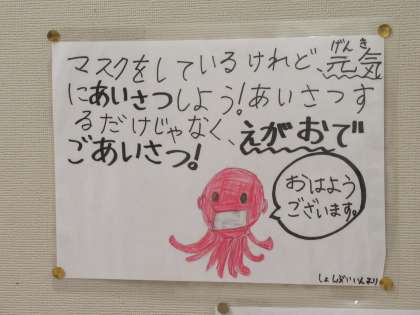 マスクをしているけれど、元気
げんき
にあいさつしよう!あいさつす
るだけじゃなく、えがおで
ごあいさつ!
おはよう
ございます。